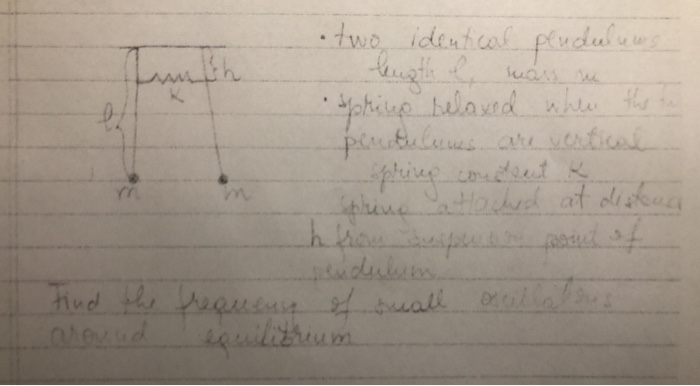 • two identical pendulums
length l, mass m
• spring relaxed when the
pendulums are vertical
spring constant k
spring attached at distance
h from suspension point of
pendulum
l
k
h
m
m
Find the frequency of small oscillations
around equilibrium